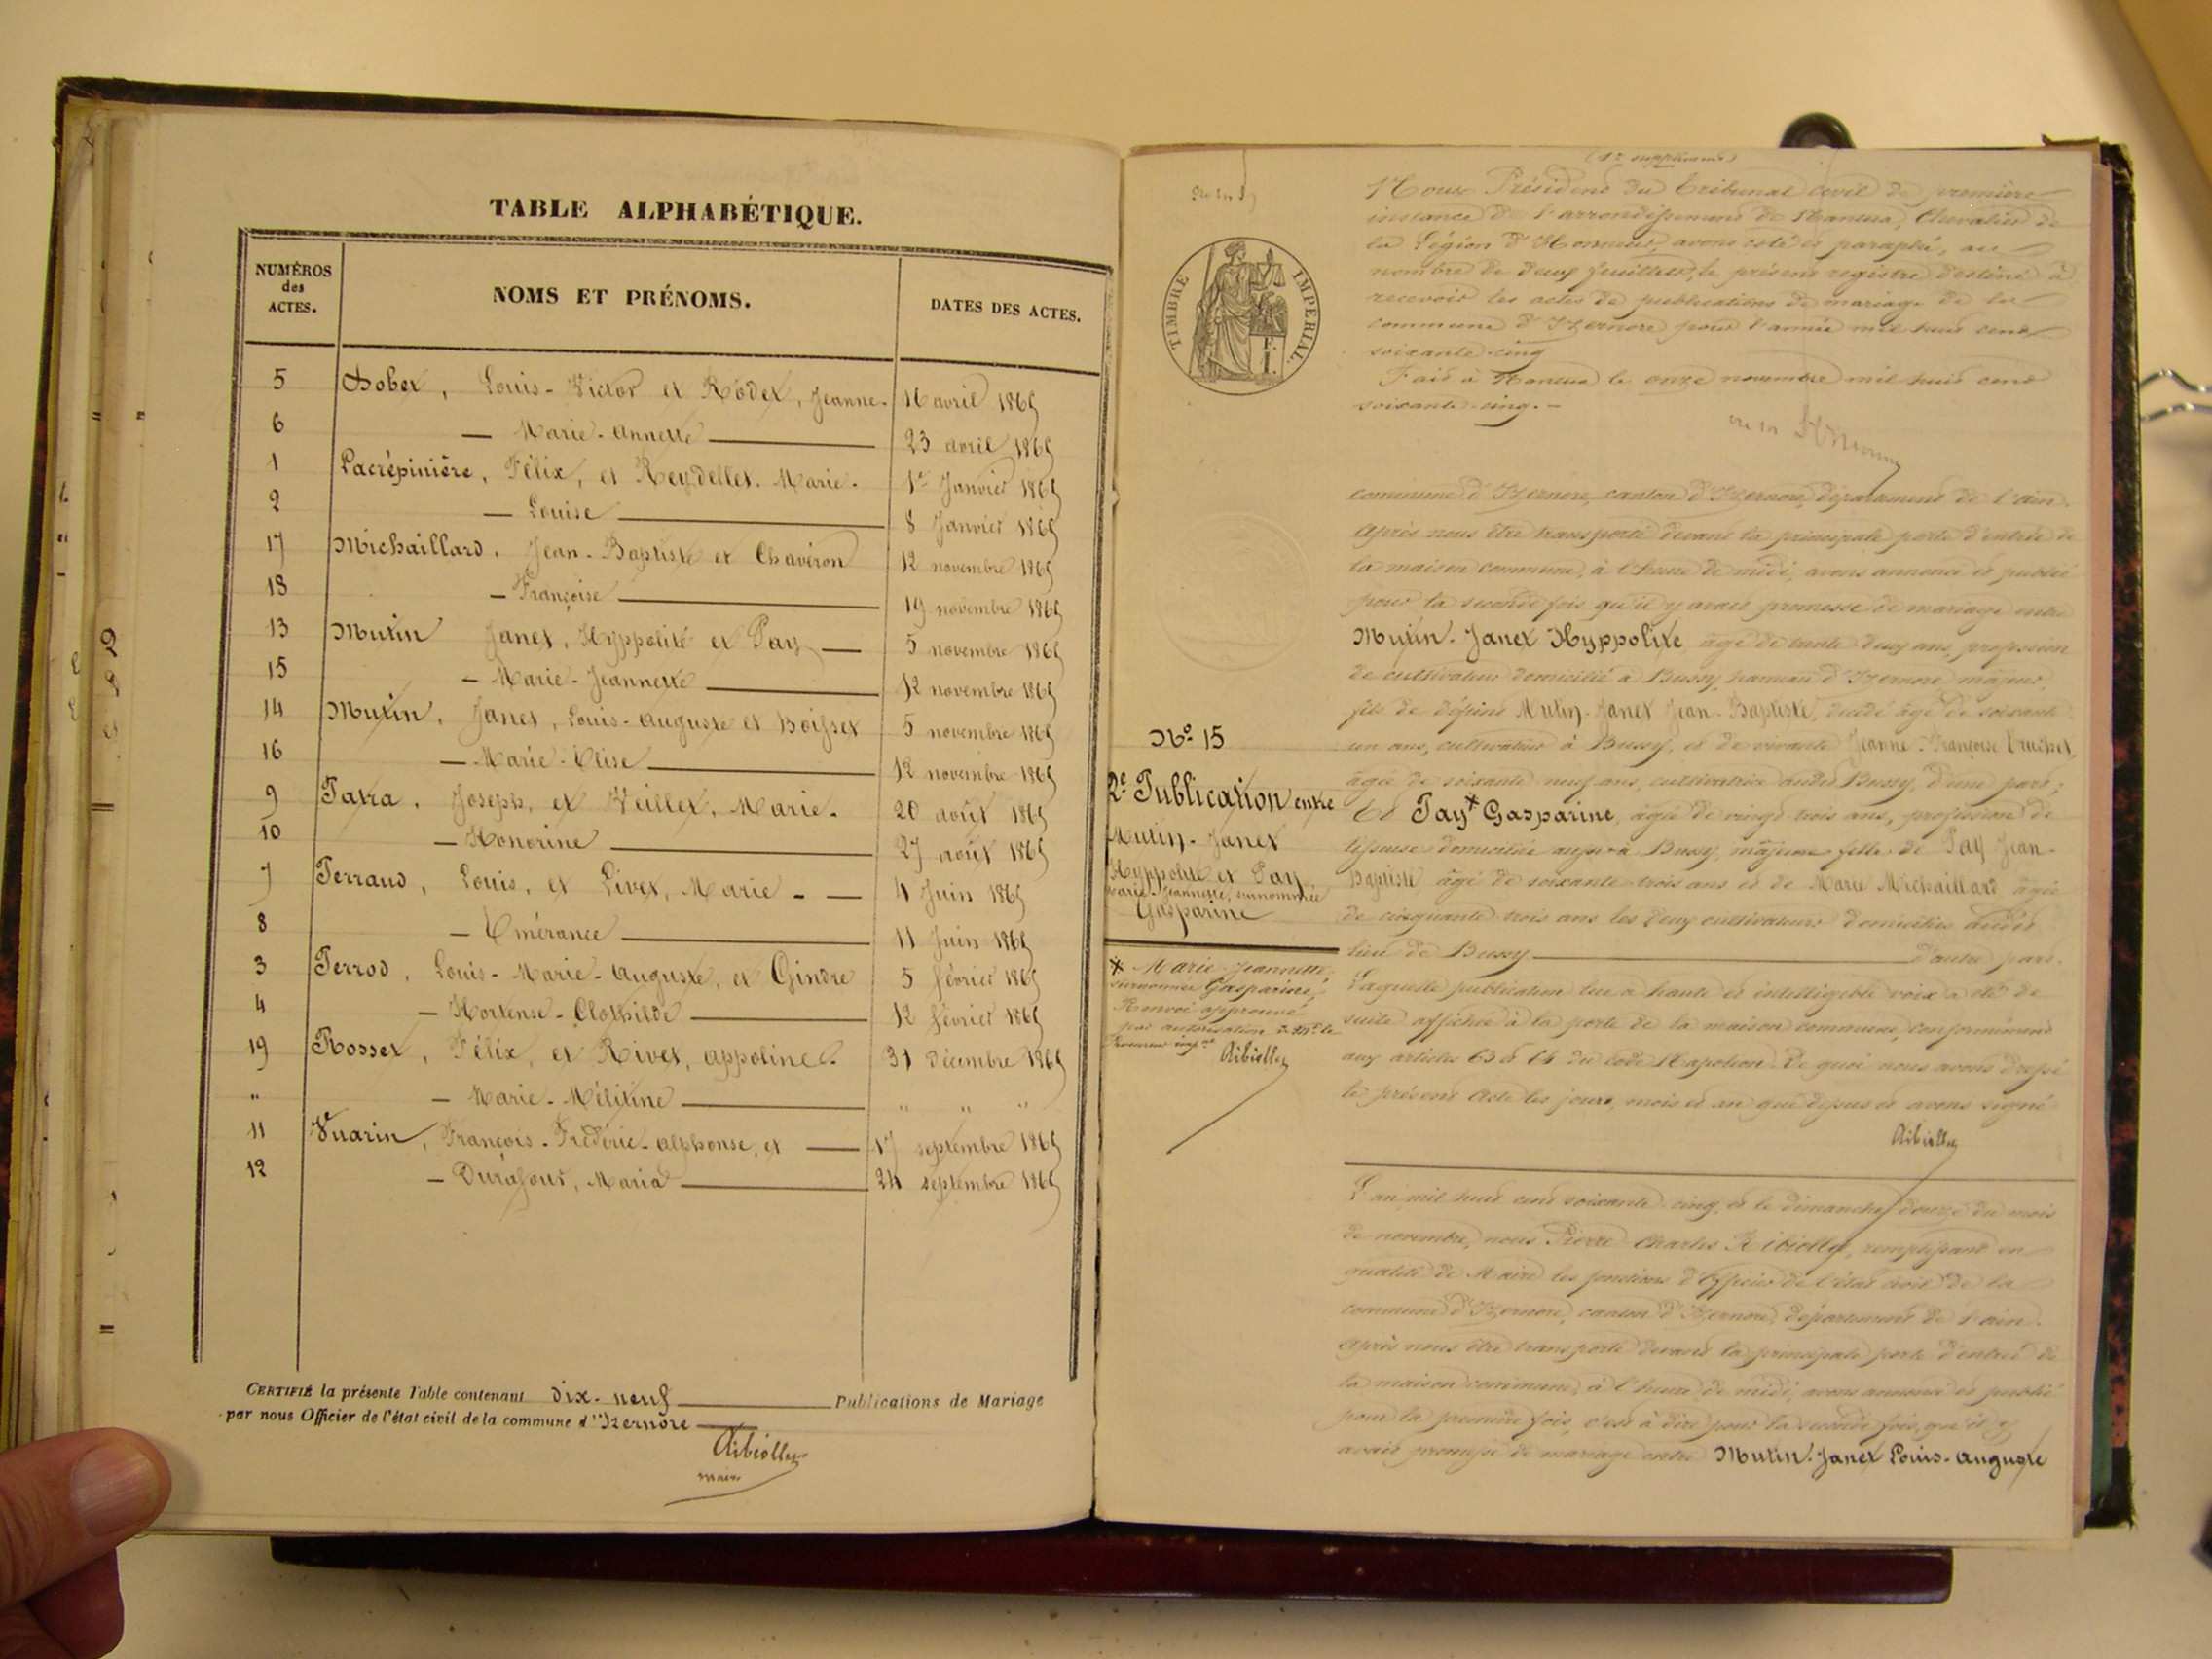 TABLE ALPHABÉTIQUE.
NUMÉROS des ACTES.
NOMS ET PRÉNOMS.
DATES DES ACTES.
5 Gobet, Louis-Victor et Rodet, Jeanne- 16 avril 1865
6 — Marie-Annette — 23 avril 1865
1 Lacrépinière, Félix, et Reydellet. Marie- 1er Janvier 1865
2 — Louise — 8 Janvier 1865
17 Michaillard, Jean-Baptiste et Chavéron 12 novembre 1865
18 — Françoise — 19 novembre 1865
13 Mutin Janet, Hyppolite et Pay — 5 novembre 1865
15 — Marie-Jeannette — 12 novembre 1865
14 Mutin, Janet, Louis-Auguste et Boisset 5 novembre 1865
16 — Marie-Élise — 12 novembre 1865
9 Tatra, Joseph, et Veillet, Marie- 20 août 1865
10 — Honorine — 27 août 1865
7 Perraud, Louis, et Livet, Marie - — 4 Juin 1865
8 — Émérance — 11 Juin 1865
3 Perrod, Louis-Marie-Auguste, et Gindre 5 février 1865
4 — Hortense-Clothilde — 12 février 1865
19 Rosset, Félix, et Rivet, appoline- 31 décembre 1865
" — Marie-Mélitine — " " "
11 Vuarin, François-Frédéric-alphonse, et — 17 septembre 1865
12 — Durafour, Maria — 24 septembre 1865
CERTIFIÉ la présente Table contenant dix-neuf — Publications de Mariage
par nous Officier de l'état civil de la commune d'Izernore —
Ribiollet
maire
(1er supplément)
Nous Président du tribunal civil de première
instance de l'arrondissement de Nantua, Chevalier de
la Légion d'Honneur, avons coté et paraphé, au
nombre de deux feuillets, le présent registre destiné à
recevoir les actes de publications de mariage de la
commune d'Izernore pour l'année mil huit cent
soixante-cinq
Fait à Nantua le onze novembre mil huit cent
soixante-cinq.-
TIMBRE IMPÉRIAL.
commune d'Izernore, canton d'Izernore, département de l'ain.
Après nous être transporté devant la principale porte d'entrée de
la maison commune, à l'heure de midi, avons annoncé et publié
pour la seconde fois qu'il y avait promesse de mariage entre
Mutin-Janet Hyppolite, âgé de trente deux ans, profession
de cultivateur domicilié à Bussy, hameau d'Izernore majeur,
fils de défunt Mutin-Janet Jean-Baptiste, décédé âgé de soixante
un ans, cultivateur à Bussy, et de vivante Jeanne-Françoise Truchet,
âgée de soixante neuf ans, cultivatrice audit Bussy, d'une part;
Et Pay* Gasparine, âgée de vingt trois ans, profession de
tisseuse domiciliée aussi à Bussy, majeure fille de Pay Jean-
Baptiste âgé de soixante trois ans et de Marie Michaillard âgée
de cinquante trois ans les deux cultivateurs domiciliés audit
lieu de Bussy — d'autre part.
Laquelle publication lue à haute et intelligible voix a été de
suite affichée à la porte de la maison commune, conformément
aux articles 63 et 64 du Code Napoléon. De quoi nous avons dressé
le présent Acte les jours, mois et an que dessus et avons signé
Ribiollet
No 15
2e Publication entre
Mutin-Janet
Hyppolite et Pay
Marie-Jeannette, surnommée
Gasparine
* Marie-Jeannette,
surnommée Gasparine,
Renvoi approuvé
par autorisation de Mr le
Procureur impal
Ribiollet
L'an mil huit cent soixante-cinq, et le dimanche douze du mois
de novembre, nous Pierre Charles Ribiollet, remplissant en
qualité de Maire les fonctions d'officier de l'état civil de la
commune d'Izernore, canton d'Izernore, département de l'ain.
Après nous être transporté devant la principale porte d'entrée de
la maison commune, à l'heure de midi, avons annoncé et publié
pour la première fois, c'est à dire pour la seconde fois, qu'il y
avait promesse de mariage entre Mutin-Janet Louis-Auguste